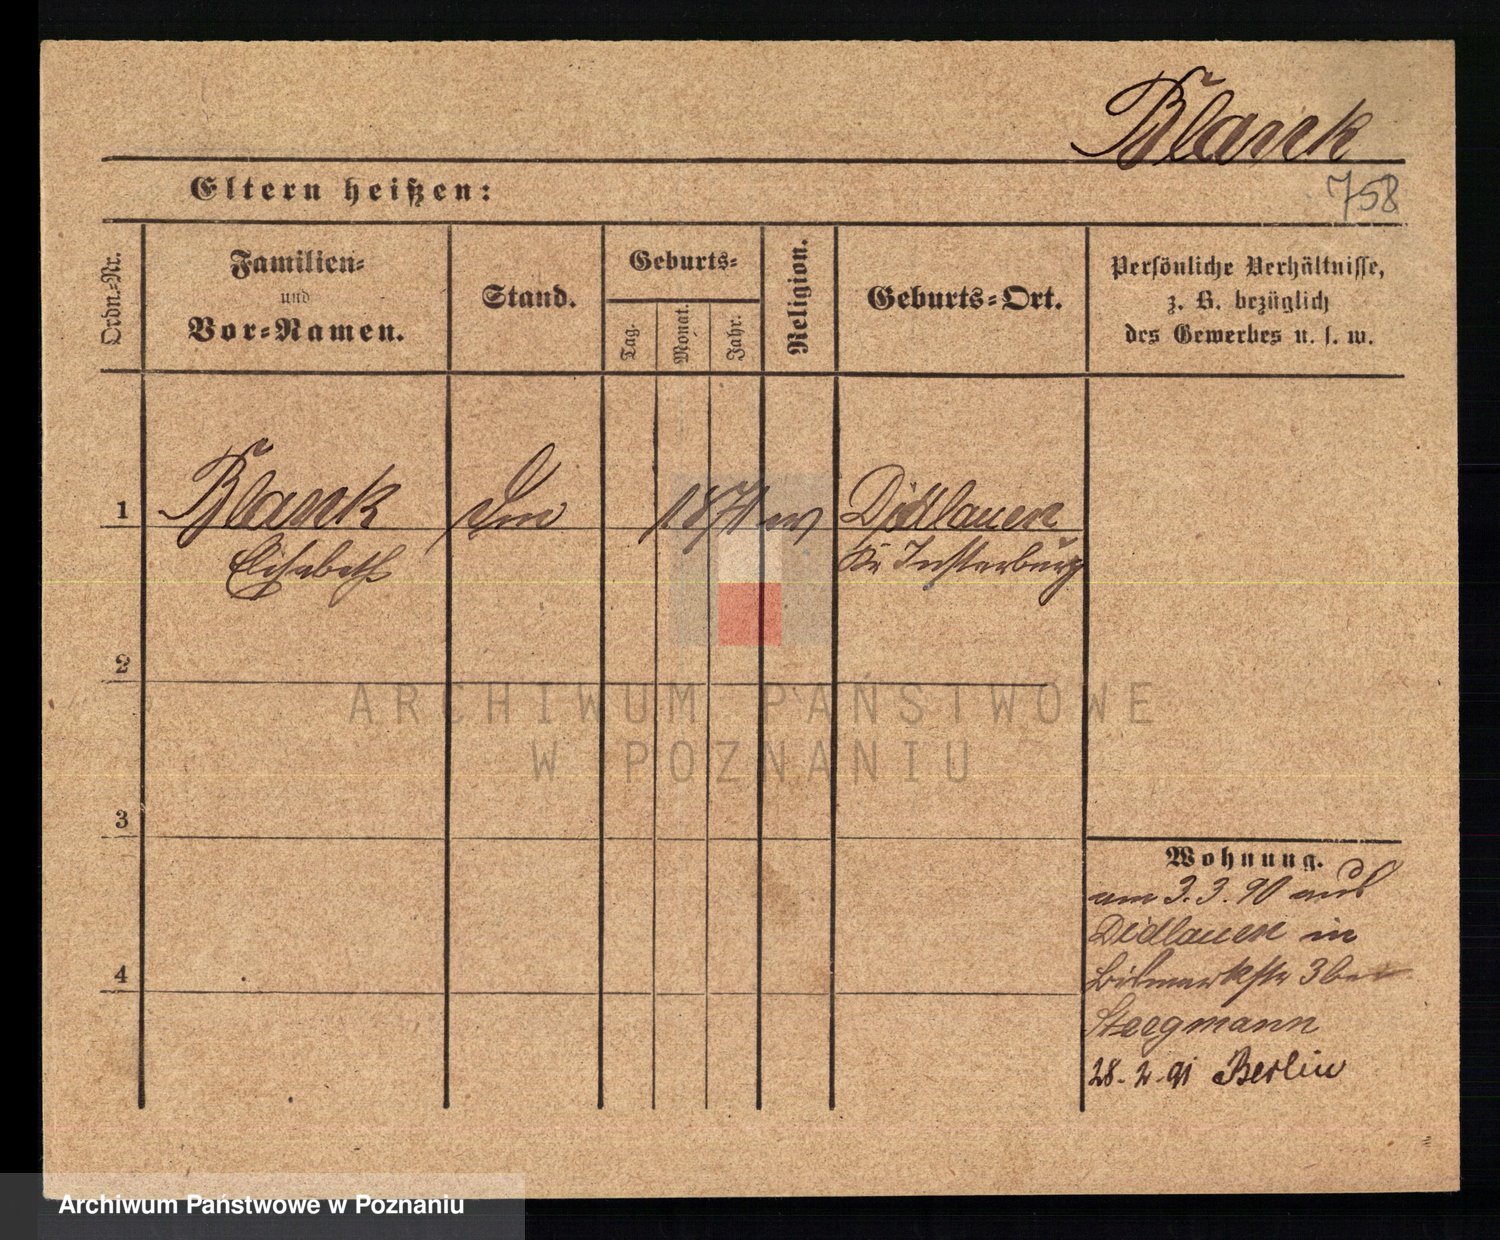 Blank
Eltern heißen:
758
Ordn.-Nr.
Familien-
und
Vor-Namen.
Stand.
Geburts-
Tag.
Monat.
Jahr.
Religion.
Geburts-Ort.
Persönliche Verhältnisse,
z. B. bezüglich
des Gewerbes u. s. w.
1
Blank
Elisabeth
1871
Didlauen
Kr Insterburg
2
3
4
Wohnung.
am 3.3.90 aus
Didlauen in
Bismarkstr 3 bei
Steegmann
28.2.91 Berlin
ARCHIWUM PAŃSTWOWE
W POZNANIU
Archiwum Państwowe w Poznaniu